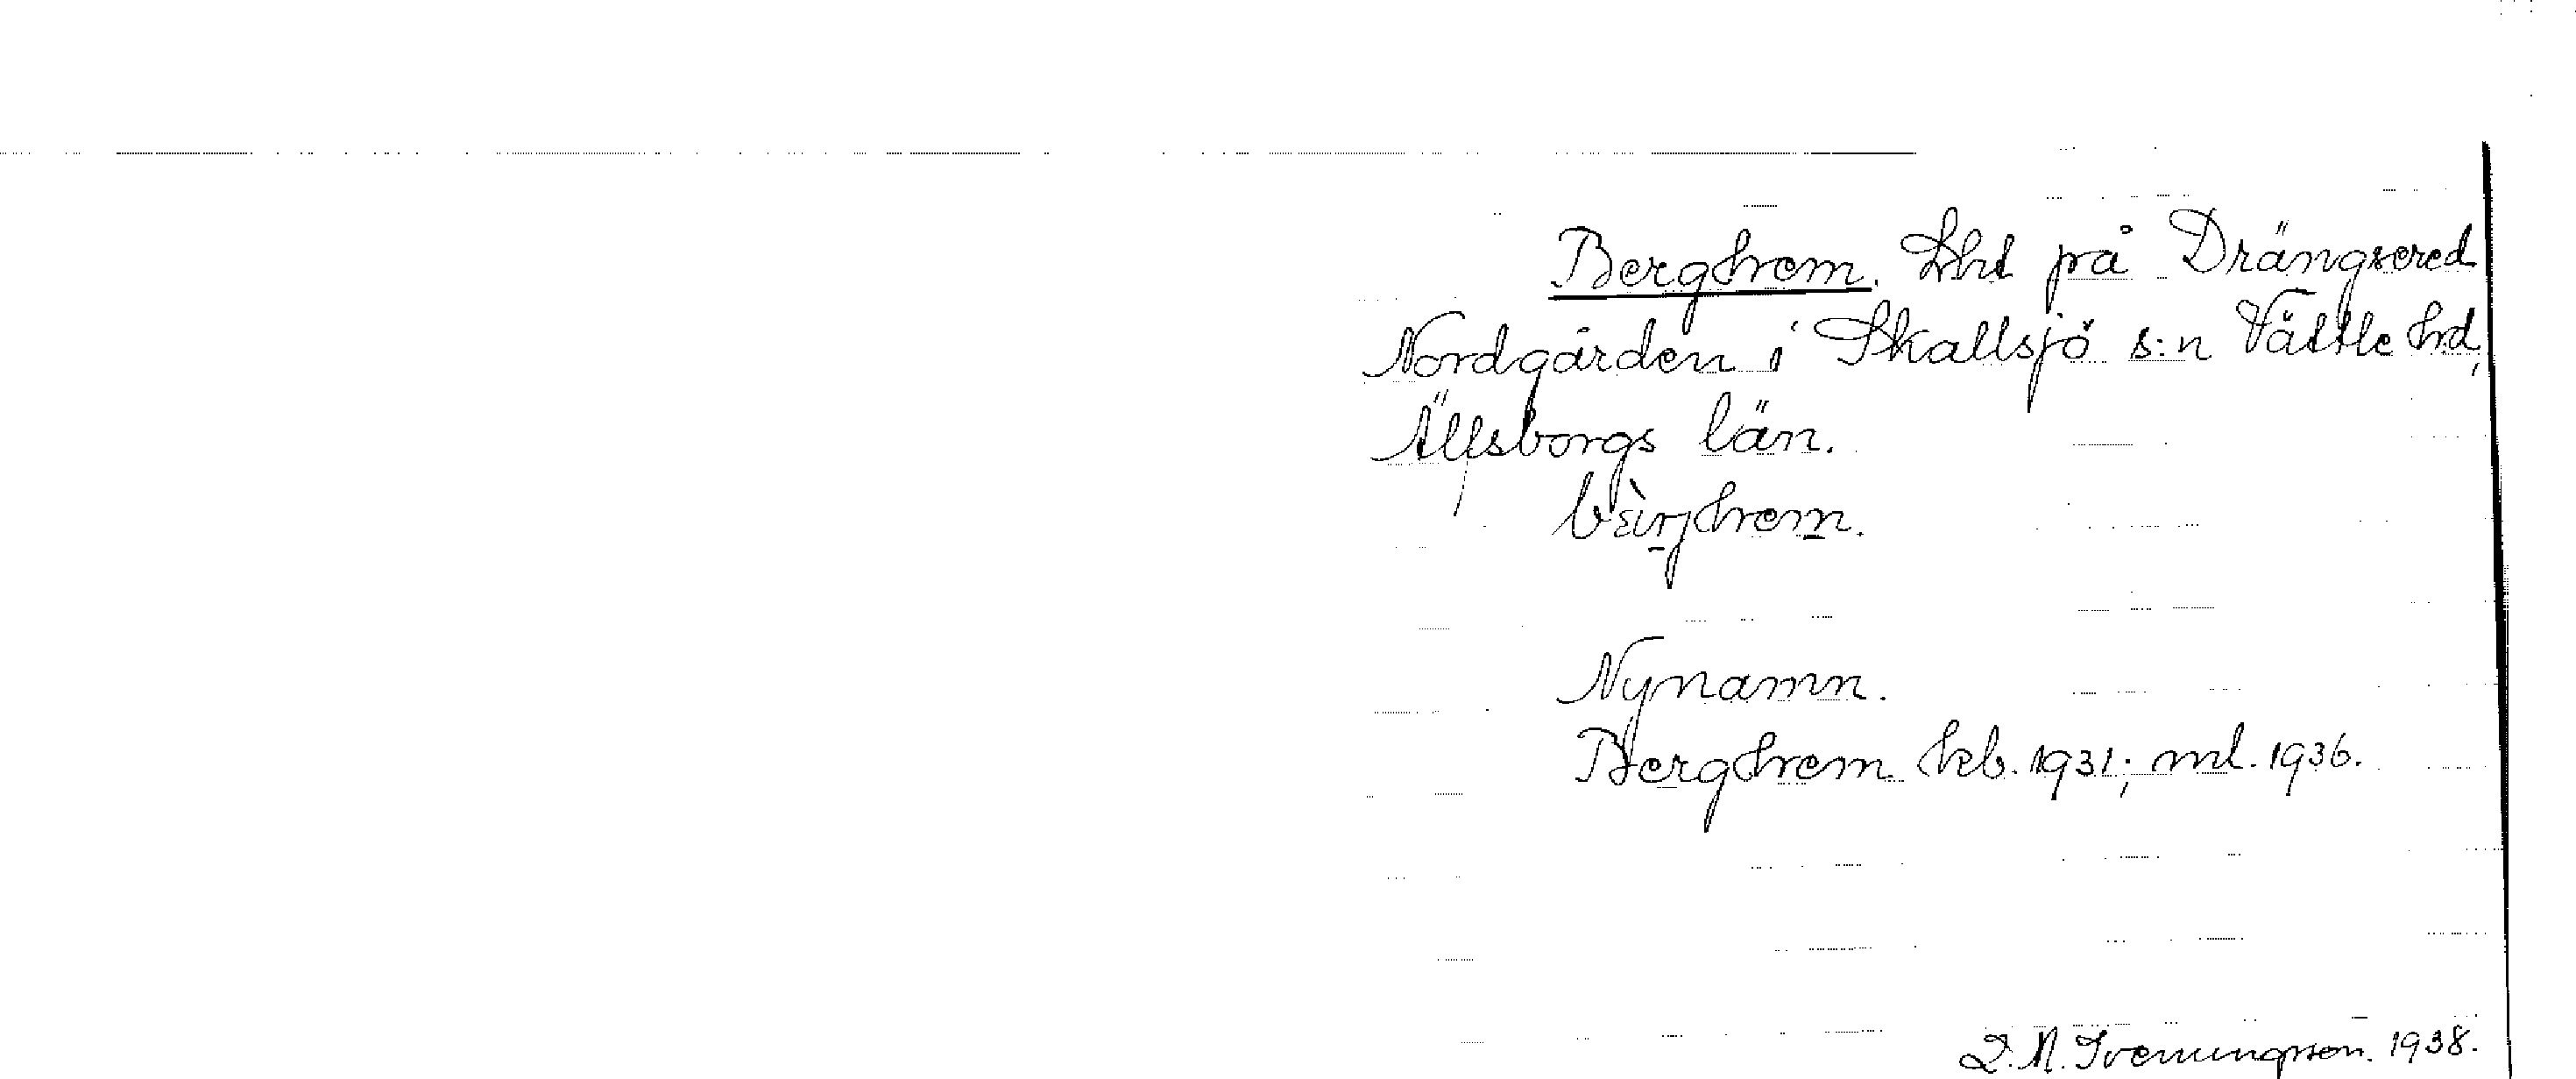 Berghem. Lht på Drängsered
Nordgården i Skallsjö s:n Vättle hd,
Älfsborgs län.
bæ̀rjhem.
Nynamn.
Berghem kb. 1931; ml. 1936.
D. A. Svenungsson. 1938.